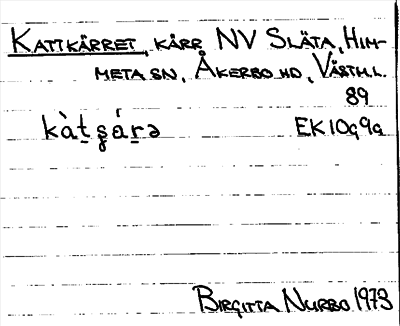 KATTKÄRRET, KÄRR NV SLÄTA, HIM-
META SN, ÅKERBO HD, VÄSTM.L.
89
kàt̠ʂár̠ə EK 10g9g
BIRGITTA NURBO 1973